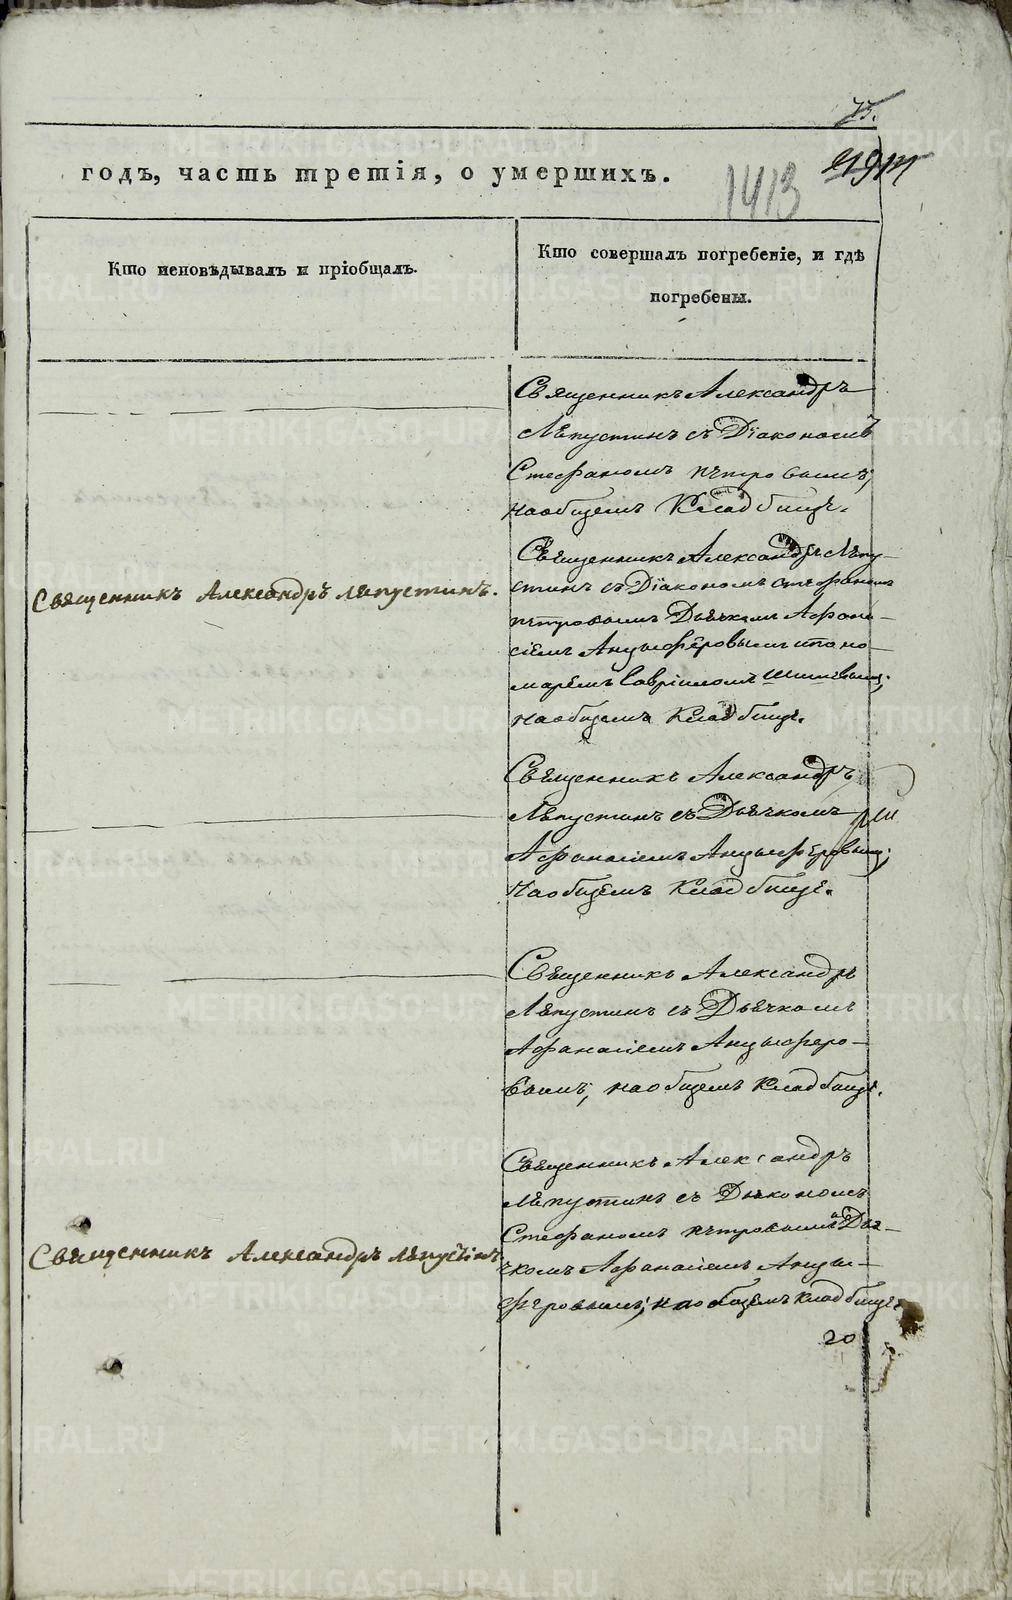 75.
1413
годъ, часть третія, о умершихъ.
Кто исповѣдывалъ и пріобщалъ.
Кто совершалъ погребеніе, и гдѣ
погребены.
Священникъ Александръ
Лѣпустинъ съ Діакономъ
Стефаномъ Петровымъ,
на общемъ Кладбищѣ.
Священникъ Александръ Лѣпустинъ.
Священникъ Александръ Лѣпу-
стинъ съ Діакономъ Стефаномъ
Петровымъ Дьячкомъ Афана-
сіемъ Анцыферовымъ и поно-
маремъ Гавріиломъ
на общемъ Кладбищѣ.
Священникъ Александръ
Лѣпустинъ съ Дьячкомъ
Афанасіемъ Анцыферовымъ;
на общемъ Кладбищѣ.
Священникъ Александръ
Лѣпустинъ съ Дьячкомъ
Афанасіемъ Анцыферо-
вымъ, на общемъ Кладбищѣ.
Священникъ Александръ Лѣпустинъ
Священникъ Александръ
Лѣпустинъ съ Діакономъ
Стефаномъ Петровымъ и Дья-
чкомъ Афанасіемъ Анцы-
феровымъ; на общемъ Кладбищѣ
20
METRIKI.GASO-URAL.RU